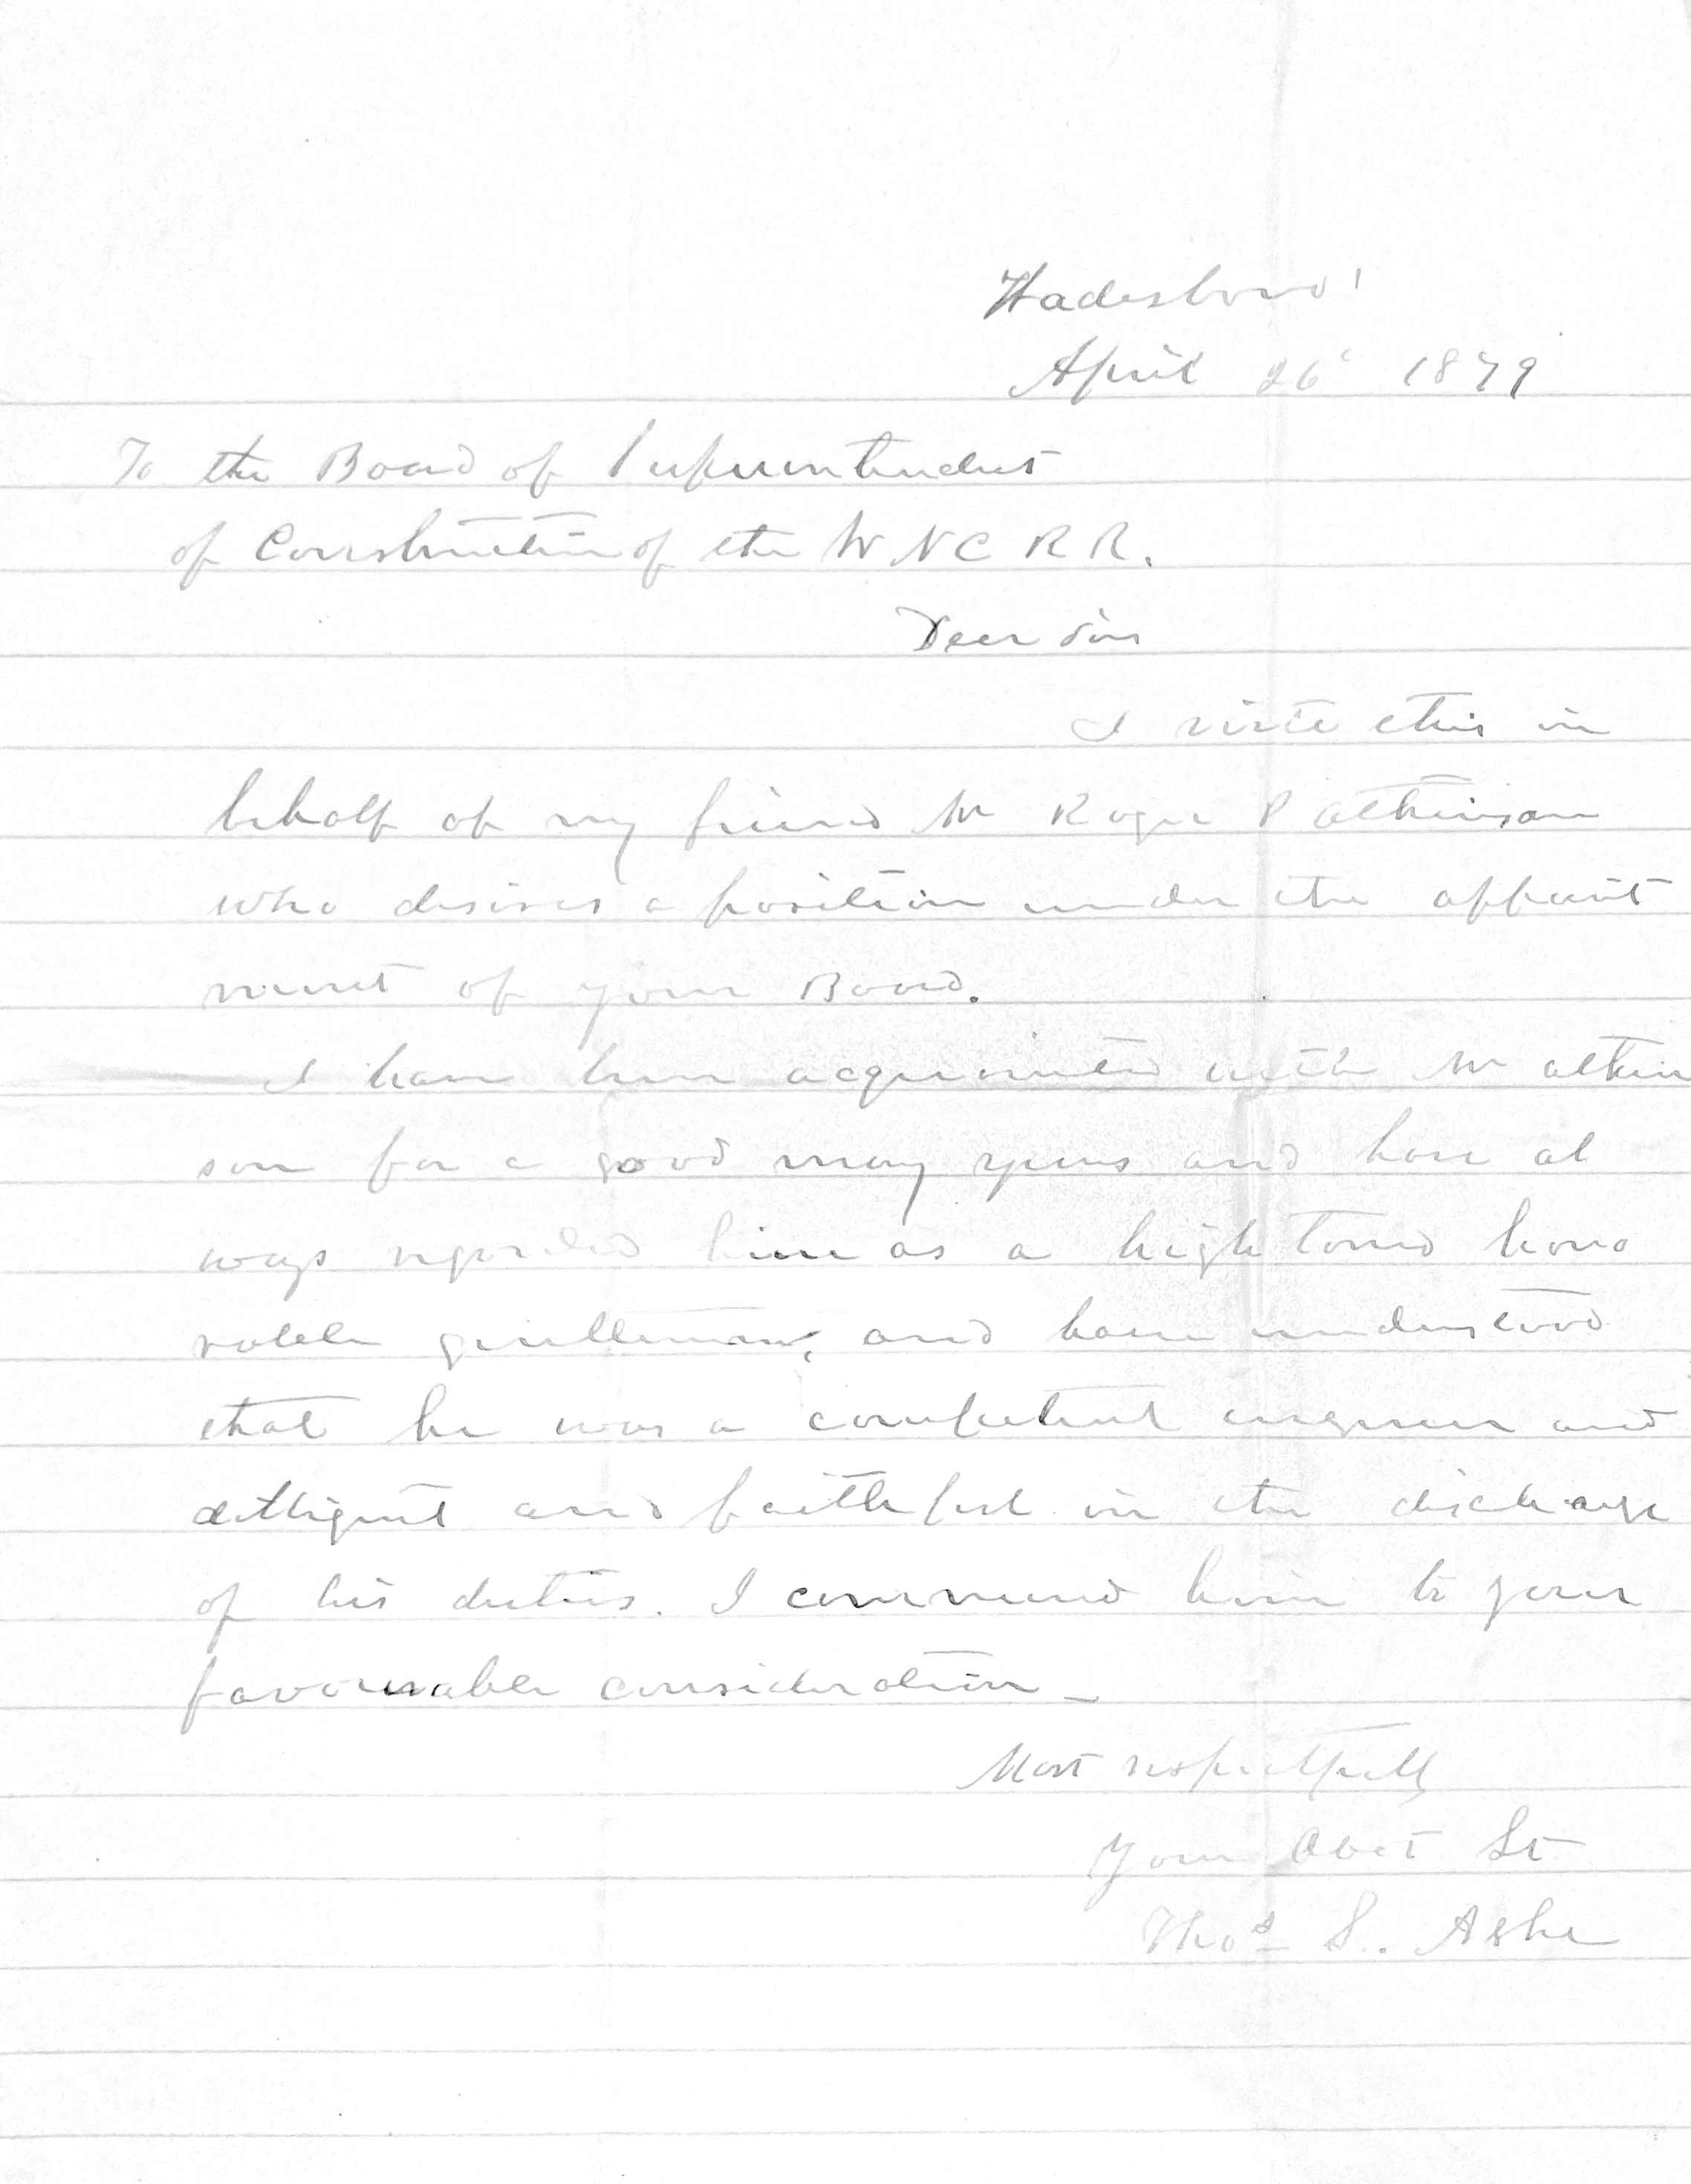 Wadesboro'
April 26 1879
To the Board of Superintendents
of Construction of the W N C R R.
Dear Sirs
I write this in
behalf of my friend Mr Roger P Atkinson
who desires a position under the appoint
ment of your Board.
I have been acquainted with Mr Atkin
son for a good many years and have al
ways regarded him as a high toned hono
rable gentleman, and have understood
that he was a competent engineer and
dilligent and faithful in the discharge
of his duties. I commend him to your
favourable consideration_
Most respectfully
Your Obet St
Thos S. Ashe